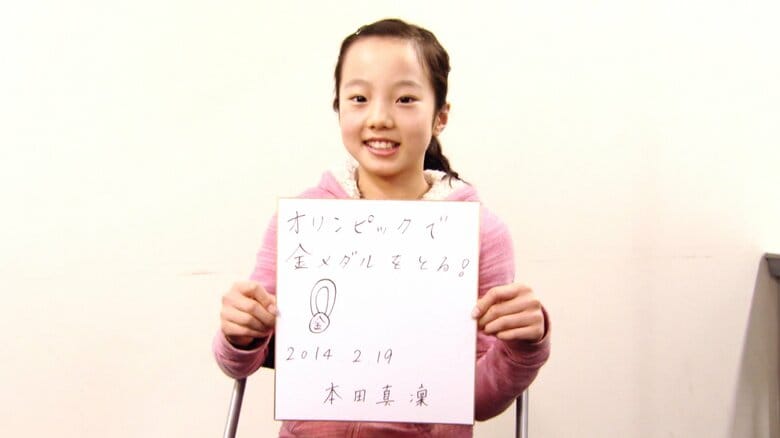 オリンピックで
金メダルをとる!
金
2014 2 19
本田真凜